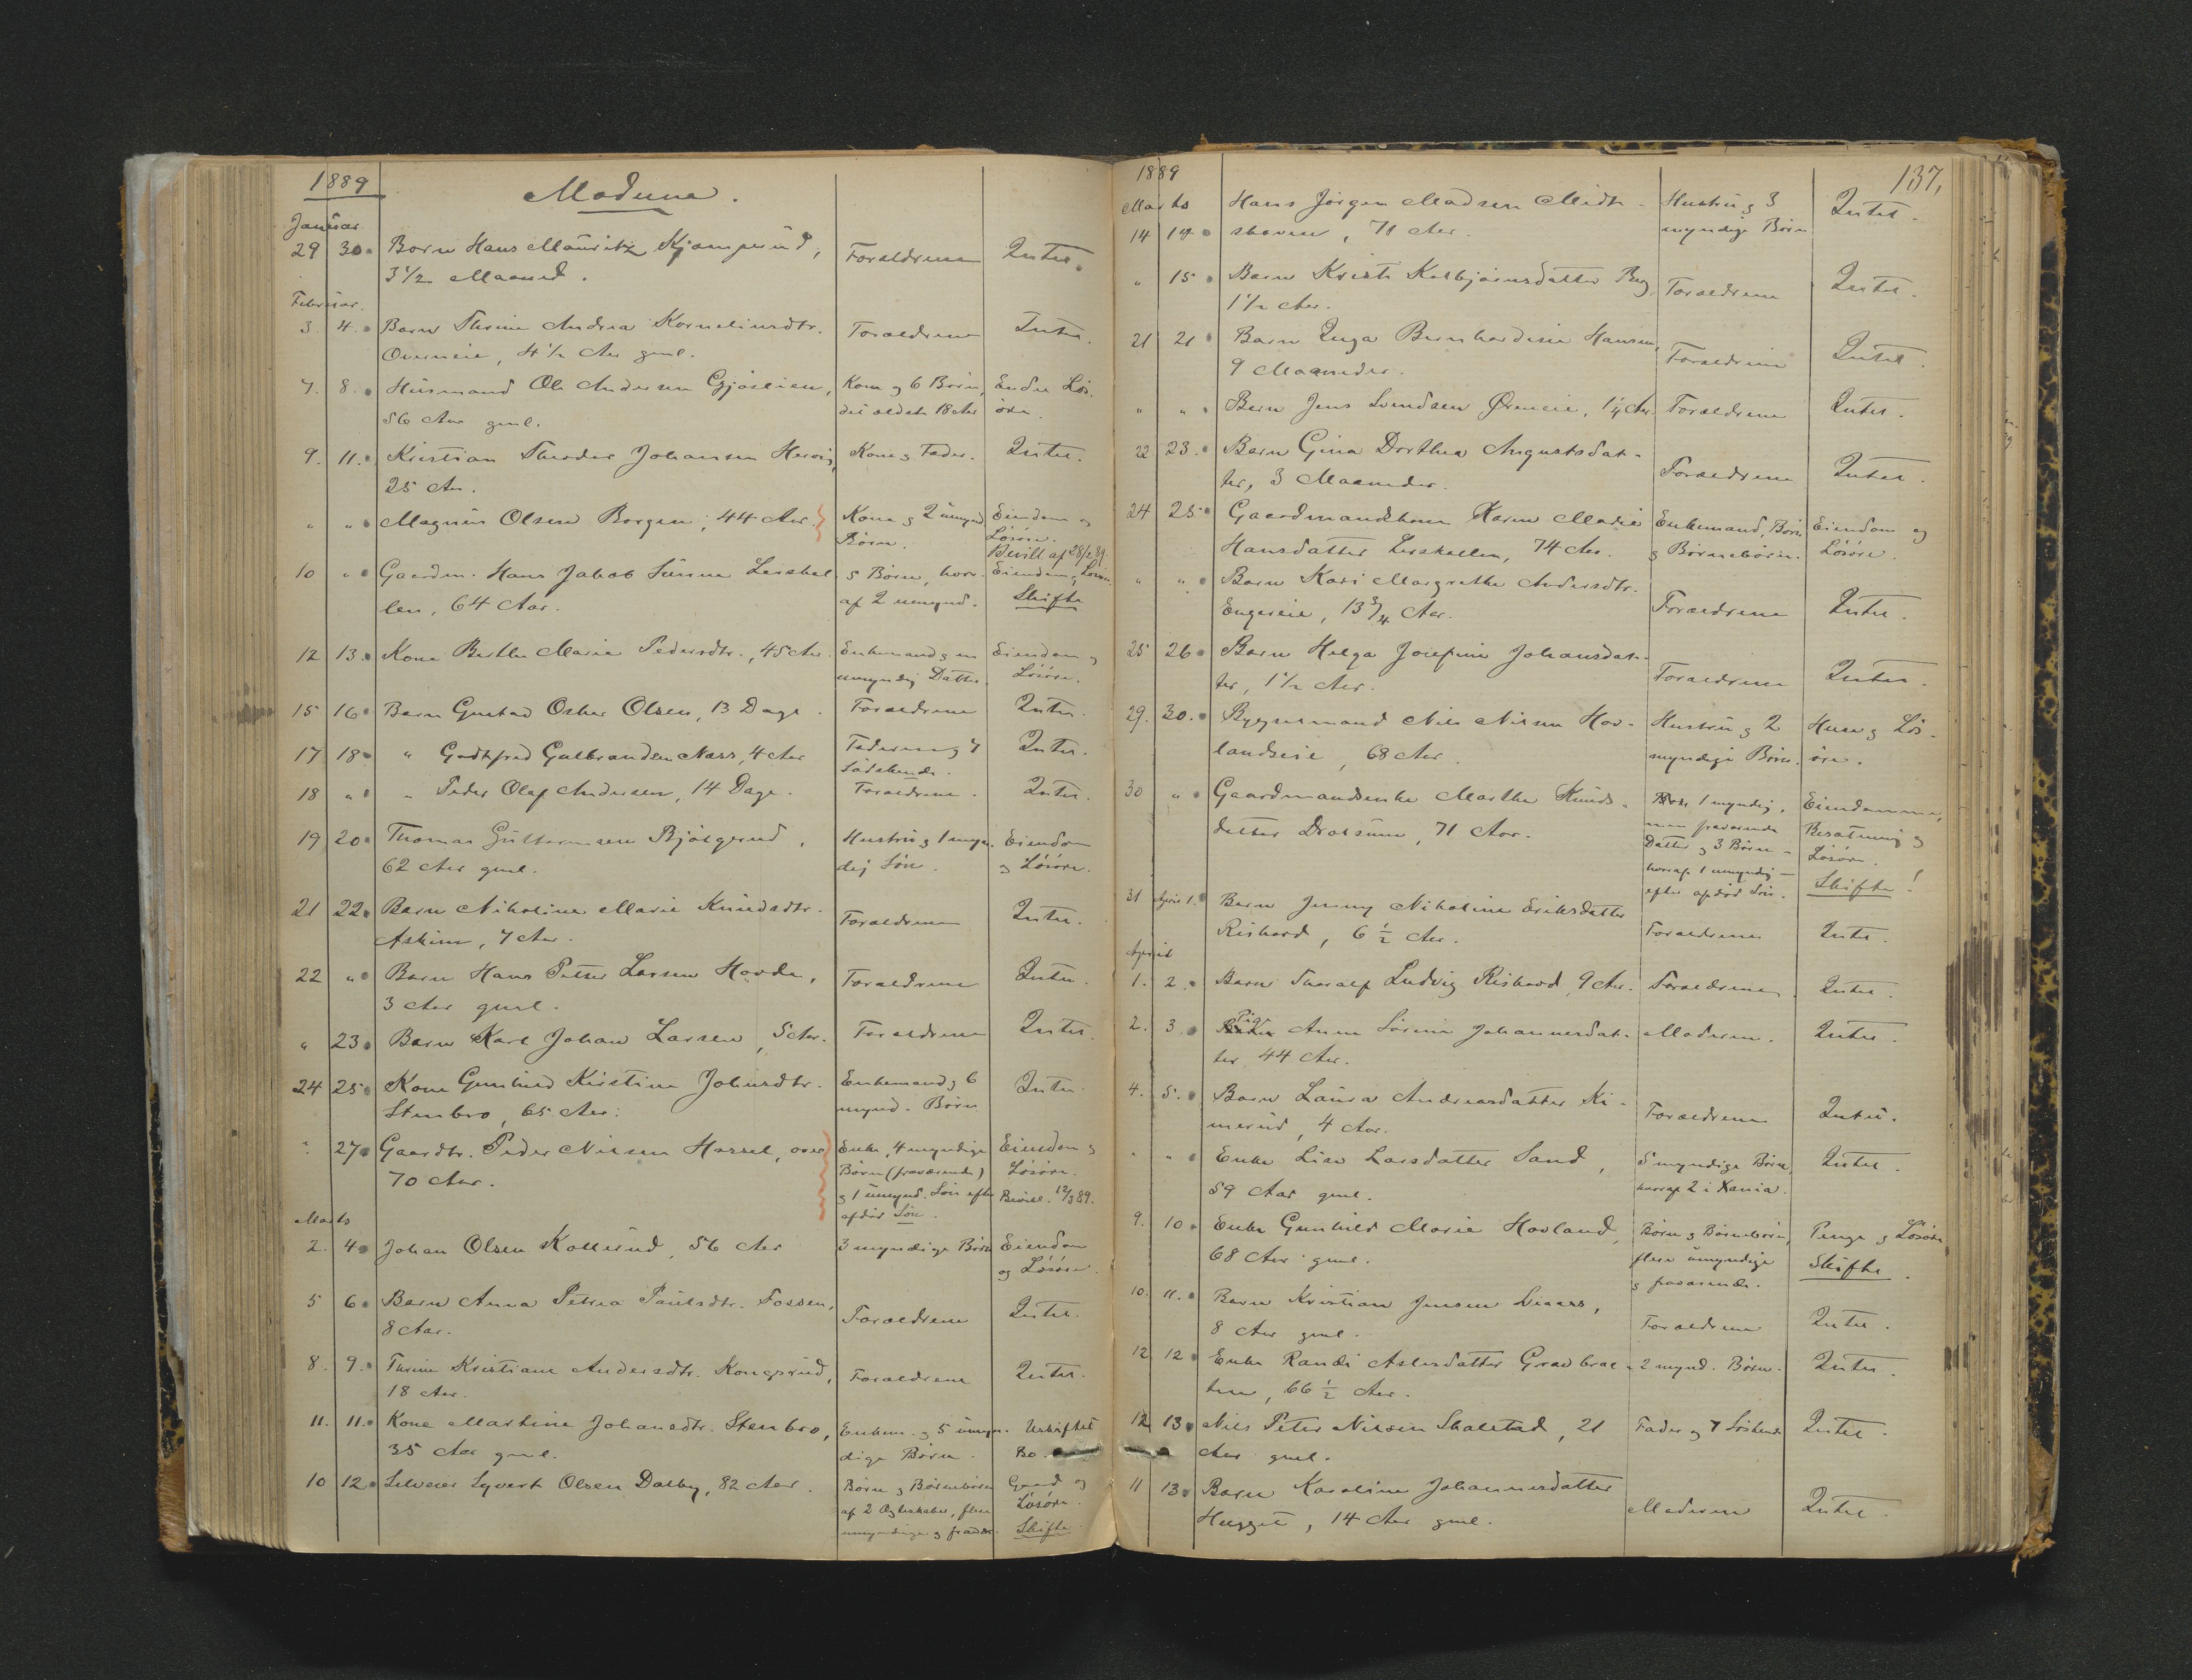 1889
Modum.
Januar
29 30 Barn Hans Mauritz Kjempruud, Forældrene Intet.
3 1/2 Maaned.
Februar.
3. 4. Barn Thrine Andrea Korneliusdtr. Forældrene Intet.
4 1/2 Aar gml.
7. 8. Husmand Ole Andersen Gjøslien, Kone og 6 Børn, Endel Løs-
56 Aar gml. det ældste 18 Aar øre.
9. 11. Kristian Theodor Johansen Kone og Fader. Intet.
25 Aar.
" " Magnus Olsen Borgen, 44 Aar. Kone og 2 umynd. Eiendom og
Børn. Løsøre.
Bevill. af 28/2 89.
10 " Gaardm. Hans Jakob Simen Lerskal- 5 Børn, hvor- Eiendom og Løsøre
len, 64 Aar. af 2 umynd. Skifte
12 13. Kone Berthe Marie Pedersdtr., 45 Aar. Enkemand og en Eiendom og
umyndig Datter. Løsøre.
15 16 Barn Gustav Oskar Olsen, 13 Dage. Forældrene Intet.
17 18 " Godtfred Gulbrandsen Næss, 4 Aar Faderen og 7 Intet.
Södskende.
18 " " Peder Olaf Andersen, 14 Dage. Forældrene. Intet.
19 20 Thomas Guttormsen Bjølgerud, Hustru og 1 myn- Eiendom
62 Aar gml. dig Søn. og Løsøre.
21 22. Barn Nikoline Marie Knudsdtr. Forældrene Intet.
Askim, 7 Aar.
22 " Barn Hans Petter Larsen Hovde, Forældrene Intet.
3 Aar gml.
" 23. Barn Karl Johan Larsen, 5 Aar. Forældrene Intet.
24 25 Kone Gunhild Kirstine Johnsdtr. Enkemand og 6 Intet.
Stenbro, 65 Aar. mynd. Børn
" 27 Gaardbr. Peder Nilsen Hassel, over Enke, 4 myndige Eiendom og
70 Aar. Børn (fraværende) Løsøre.
og 1 umynd. Søn efter Bevill. 12/3 89.
afdød Søn.
Marts
2. 4. Johan Olsen Kollerud, 56 Aar 3 myndige Børn Eiendom
og Løsøre.
5 6 Barn Anna Petrea Paulsdtr. Fossen, Forældrene Intet.
8 Aar.
8. 9. Thrine Kristiane Andersdtr. Kongsrud, Forældrene Intet.
18 Aar.
11. 11. Kone Martine Johansdtr. Stenbro, Enkem. og 5 umyn- Uskiftet
35 Aar gml. dige Børn. Bo.
10 12 Selveier Syvert Olsen Dalby, 82 Aar. Børn og Børnebørn Gaard og
af 2 Ægteskaber, flere Løsøre.
umyndige og fravær. Skifte.
1889 137,
Marts Hans Jørgen Madsen Midt- Hustru og 3 Intet.
14 14 skoven, 71 Aar. myndige Børn
" 15 Barn Kristi Kolbjørnsdatter Berg Forældrene Intet.
1 1/2 Aar.
21 21 Barn Inga Bernhardine Hansen, Forældrene Intet.
9 Maaneder.
" " Barn Jens Svendsen Øreneie, 1 1/4 Aar. Forældrene Intet.
22 23. Barn Gina Dorthea Augustsdat- Forældrene Intet.
ter, 3 Maaneder.
24 25 Gaardmandskone Karen Marie Enkemand, Børn Eiendom og
Hansdatter Lerskallen, 74 Aar. og Børnebørn. Løsøre.
" " Barn Kari Margrethe Andersdtr. Forældrene Intet.
Engereie, 13 3/4 Aar.
25 26 Barn Helga Josefine Johansdat- Forældrene Intet.
ter, 1 1/2 Aar.
29. 30. Bygselmand Nils Nilsen Hov- Hustru og 2 Huse og Løs-
landseie, 68 Aar. myndige Børn. øre.
30 " Gaardmandsenke Marthe Knuds- 1 myndig, Eiendomme,
datter Drolsum, 71 Aar. men fraværende Besætning og
Datter og 3 Børn – Løsøre.
hvoraf 1 umyndig – Skifte!
efter afdød Søn.
31 April 1. Barn Jenny Nikoline Eriksdatter
Rishovd, 6 1/2 Aar. Forældrene Intet.
April
1. 2. Barn Thoralf Ludvig Rishovd, 9 Aar. Forældrene. Intet.
2. 3. Pige Anne Sørine Johannesdat- Moderen. Intet.
ter, 44 Aar.
4. 5. Barn Laura Andreasdatter Ki- Forældrene Intet.
merud, 4 Aar.
" " Enke Lise Larsdatter Sand, 5 myndige Børn, Intet.
59 Aar gml. hvoraf 2 i Xania.
9. 10. Enke Gunhild Marie Hovland, Børn og Børnebørn, Penge og Løsøre
68 Aar gml. flere umyndige Skifte.
og fraværende.
10. 11. Barn Kristian Jensen
8 Aar gml. Forældrene Intet.
12 12 Enke Randi Aslesdatter Gravbræk- 2 mynd. Børn. Intet.
ken, 66 1/2 Aar.
12 13 Nils Peter Nilsen Skalstad, 21 Fader og 7 Søskende Intet.
Aar gml.
11 13. Barn Karoline Johannesdatter
Hugget, 14 Aar gml. Moderen Intet.